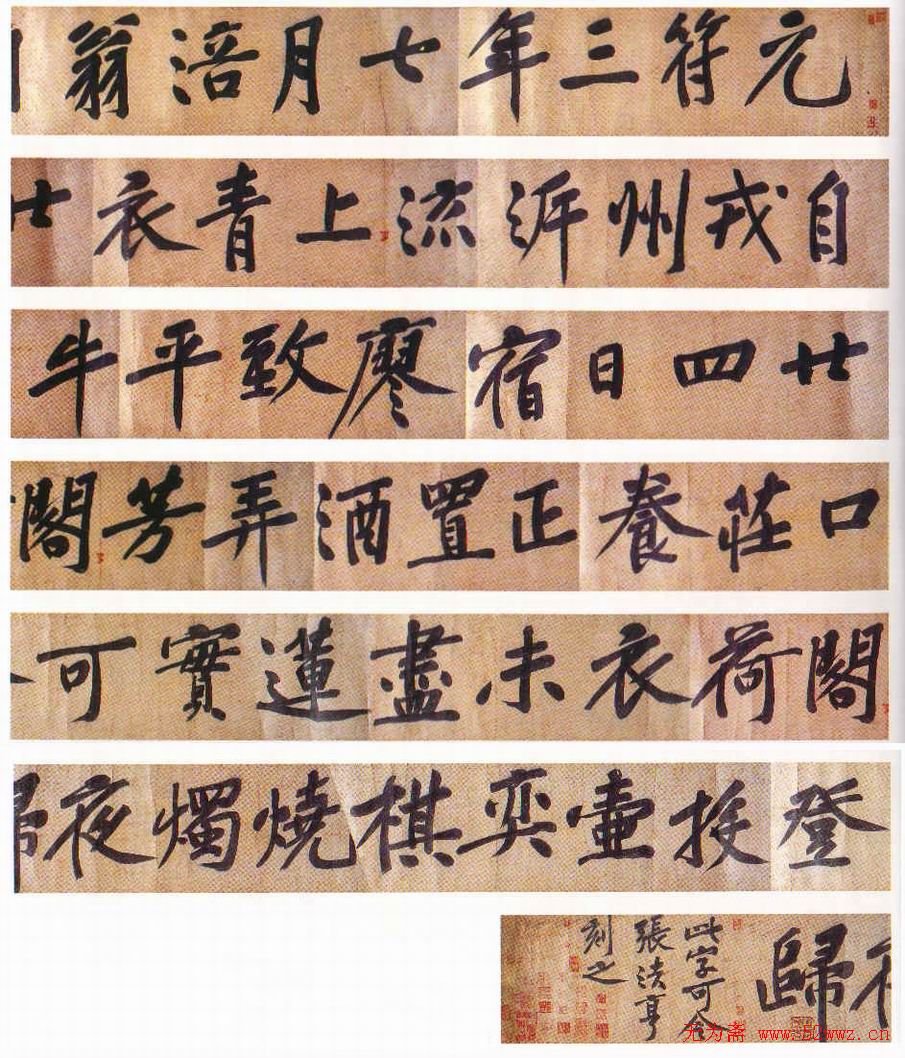 元符三年七月涪翁
自戎州泝流上青衣
廿四日宿廖致平牛
口莊養正置酒弄芳閣
閣荷衣未盡蓮實可
登投壺奕棋燒燭夜
歸
此字可令
張法亨
刻之
无为斋 www.50wwz.cn